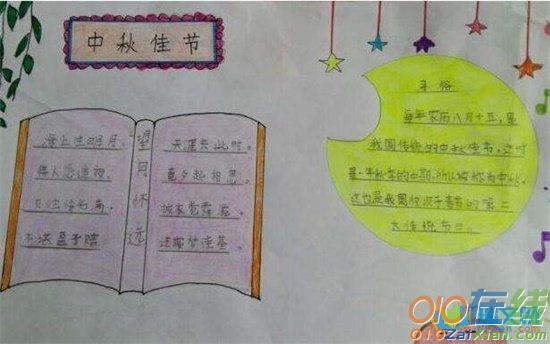 中秋佳节
海上明月,
情人怨遥夜
不堪盈手赠
望月怀远
天涯共此时。
竟夕起相思。
披衣觉露滋。
还寝梦佳期。
习俗
每年农历八月十五,是
我国传统的中秋佳节。这时
是一年秋季的中期,所以被称为中秋。
这也是我国仅次于春节的第二
大传统节日。
010在线
010zaixian.com